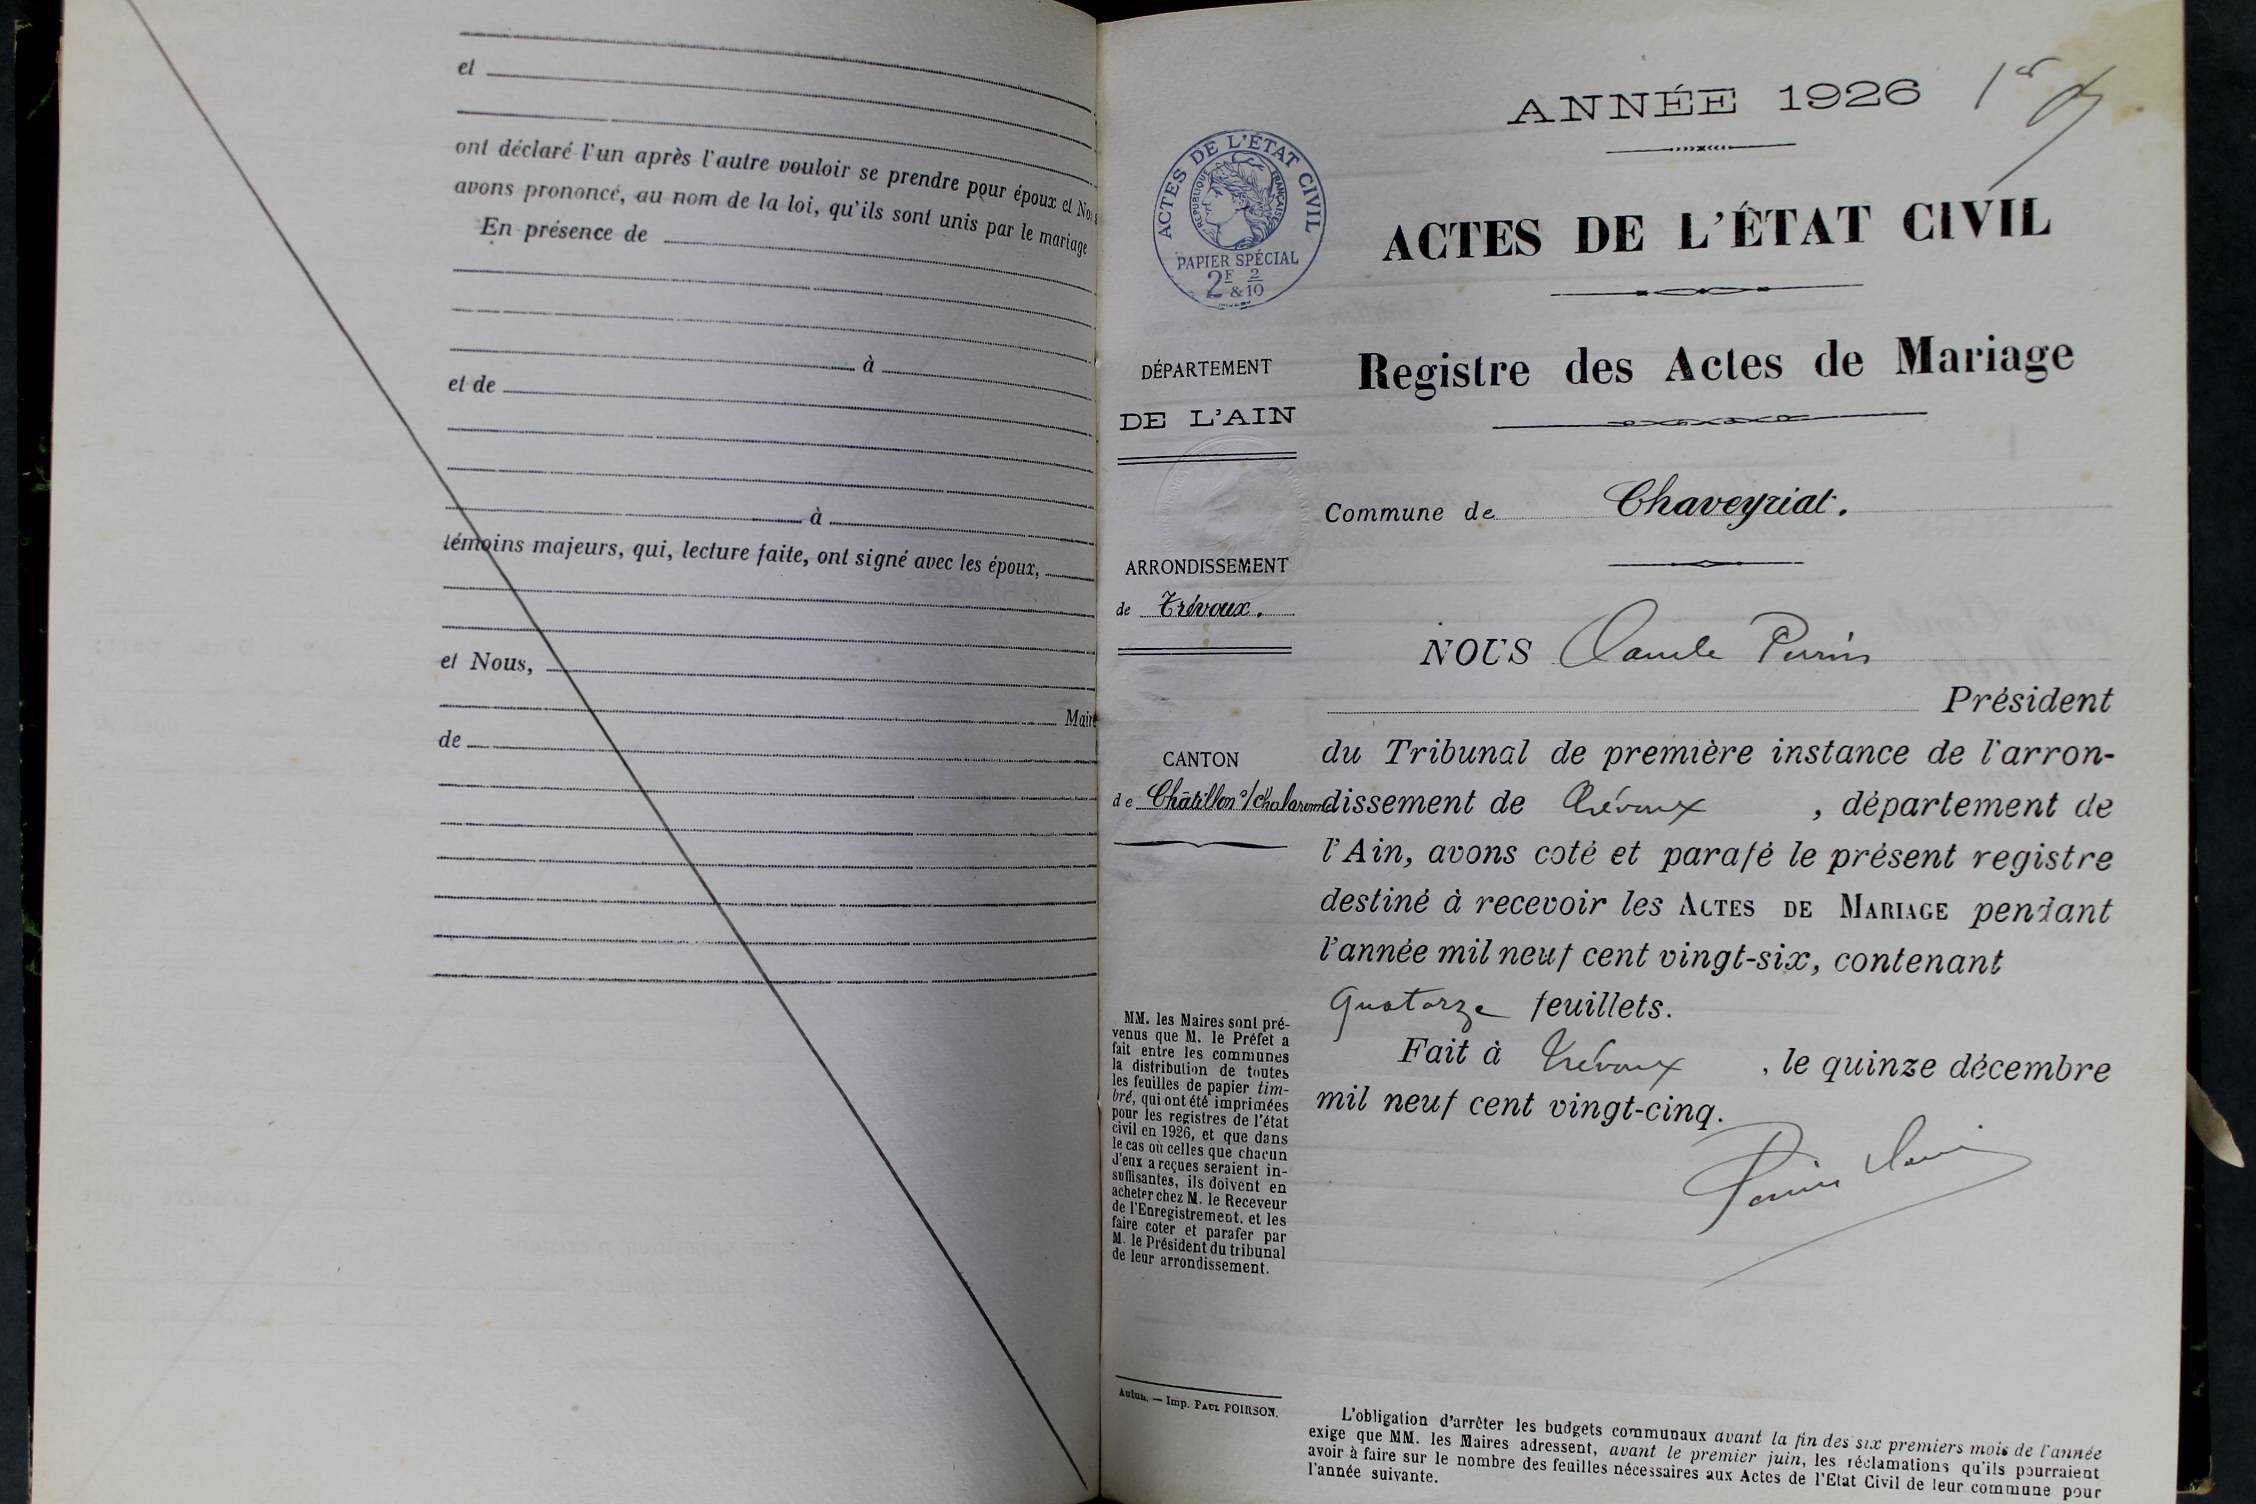 et
ont déclaré l'un après l'autre vouloir se prendre pour époux et Nous
avons prononcé, au nom de la loi, qu'ils sont unis par le mariage
En présence de
à
et de
à
témoins majeurs, qui, lecture faite, ont signé avec les époux,
et Nous,
Maire
de
ANNÉE 1926
1er
ACTES DE L'ÉTAT CIVIL
RÉPUBLIQUE FRANÇAISE
PAPIER SPÉCIAL
2F & 2/10
ACTES DE L'ÉTAT CIVIL
Registre des Actes de Mariage
DÉPARTEMENT
DE L'AIN
Commune de Chaveyriat.
ARRONDISSEMENT
de Trévoux.
CANTON
de Châtillon s/Chalaronne
NOUS Claude Perrin
Président
du Tribunal de première instance de l'arron-
dissement de Trévoux, département de
l'Ain, avons coté et parafé le présent registre
destiné à recevoir les ACTES DE MARIAGE pendant
l'année mil neuf cent vingt-six, contenant
quatorze feuillets.
Fait à Trévoux, le quinze décembre
mil neuf cent vingt-cinq.
Perrin Claude
MM. les Maires sont pré-
venus que M. le Préfet a
fait entre les communes
la distribution de toutes
les feuilles de papier tim-
bré, qui ont été imprimées
pour les registres de l'état
civil en 1926, et que dans
le cas où celles que chacun
d'eux a reçues seraient in-
suffisantes, ils doivent en
acheter chez M. le Receveur
de l'Enregistrement, et les
faire coter et parafer par
M. le Président du tribunal
de leur arrondissement.
Autun. — Imp. PAUL POIRSON.
L'obligation d'arrêter les budgets communaux avant la fin des six premiers mois de l'année
exige que MM. les Maires adressent, avant le premier juin, les réclamations qu'ils pourraient
avoir à faire sur le nombre des feuilles nécessaires aux Actes de l'Etat Civil de leur commune pour
l'année suivante.